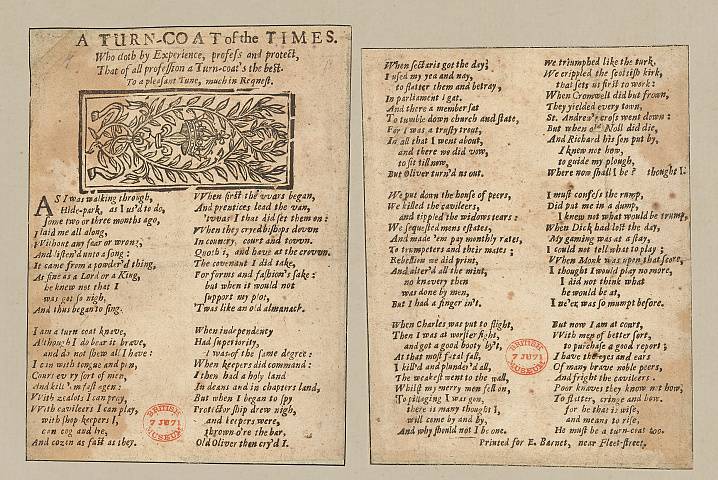 A TURN-COAT of the TIMES.
Who doth by Experience, profess and protect,
That of all profession a Turn-coat's the best.
To a pleasant Tune, much in Request.
AS I was walking through,
Hide-park, as I us'd to do,
some two or three months ago,
I laid me all along,
Without any fear or wrong;
And listen'd unto a song:
It came from a powder'd thing,
As fine as a Lord or a King,
he knew not that I
was got so nigh,
And thus began to sing.
I am a turn coat knave,
Although I do bear it brave,
and do not shew all I have:
I can with tongue and pen,
Court every sort of men,
And kill 'em fast agen:
With zealots I can pray,
With cavileers I can play,
with shop keepers I,
can cog and lye,
And cozen as fast as they.
When first the wars began,
And prentices lead the van,
'twas I that did set them on:
When they cryed bishops down
In country, court and town.
Quoth I, and have at the crown.
The covenant I did take,
For forms and fashion's sake:
but when it would not
support my plot,
'Twas like an old almanack.
When independency
Had superiority,
I was of the same degree:
When keepers did command:
I then had a holy land
In deans and in chapters land,
But when I began to spy
Protectorship drew nigh,
and keepers were,
thrown o're the bar.
Old Oliver then cry'd I.
BRITISH MUSEUM
7 JU 71
When sectaris got the day;
I used my yea and nay,
to flatter them and betray,
In parliament I gat.
And there a member sat
To tumble down church and state,
For I was a trusty trout,
In all that I went about,
and there we did vow,
to sit till now,
But Oliver turn'd us out.
We put down the house of peers,
We killed the cavileers,
and tippled the widows tears:
We sequestred mens estates,
And made 'em pay monthly rates,
To trumpeters and their mates;
Rebellion we did print,
And alter'd all the mint,
no knavery then
was done by men,
But I had a finger in't.
When Charles was put to flight,
Then I was at worster fight,
and got a good booty by't,
At that most fatal fall,
I kill'd and plunder'd all,
The weakest went to the wall,
Whilst my merry men fell on,
To pillaging I was gon,
there is many thought I,
will come by and by,
And why should not I be one.
We triumphed like the turk,
We crippled the scotish kirk,
that sets us first to work:
When Cromwell did but frown,
They yielded every town,
St. Andrew's cross went down:
But when old Noll did die,
And Richard his son put by,
I knew not how,
to guide my plough,
Where now shall I be? thought I.
I must confess the rump,
Did put me in a dump,
I knew not what would be trump,
When Dick had lost the day,
My gaming was at a stay,
I could not tell what to play;
When Monk was upon that score,
I thought I would play no more,
I did not think
what he would be at,
I ne'er was so mumpt before.
But now I am at court,
With men of better sort,
to purchase a good report;
I have the eyes and ears
Of many brave noble peers,
And fright the cavileers.
Poor knaves they know not how,
To flatter, cringe and bow.
for he that is wise,
and means to rise,
He must be a turn-coat too.
BRITISH MUSEUM
7 JU 71
Printed for E. Barnet, near Fleet-street.